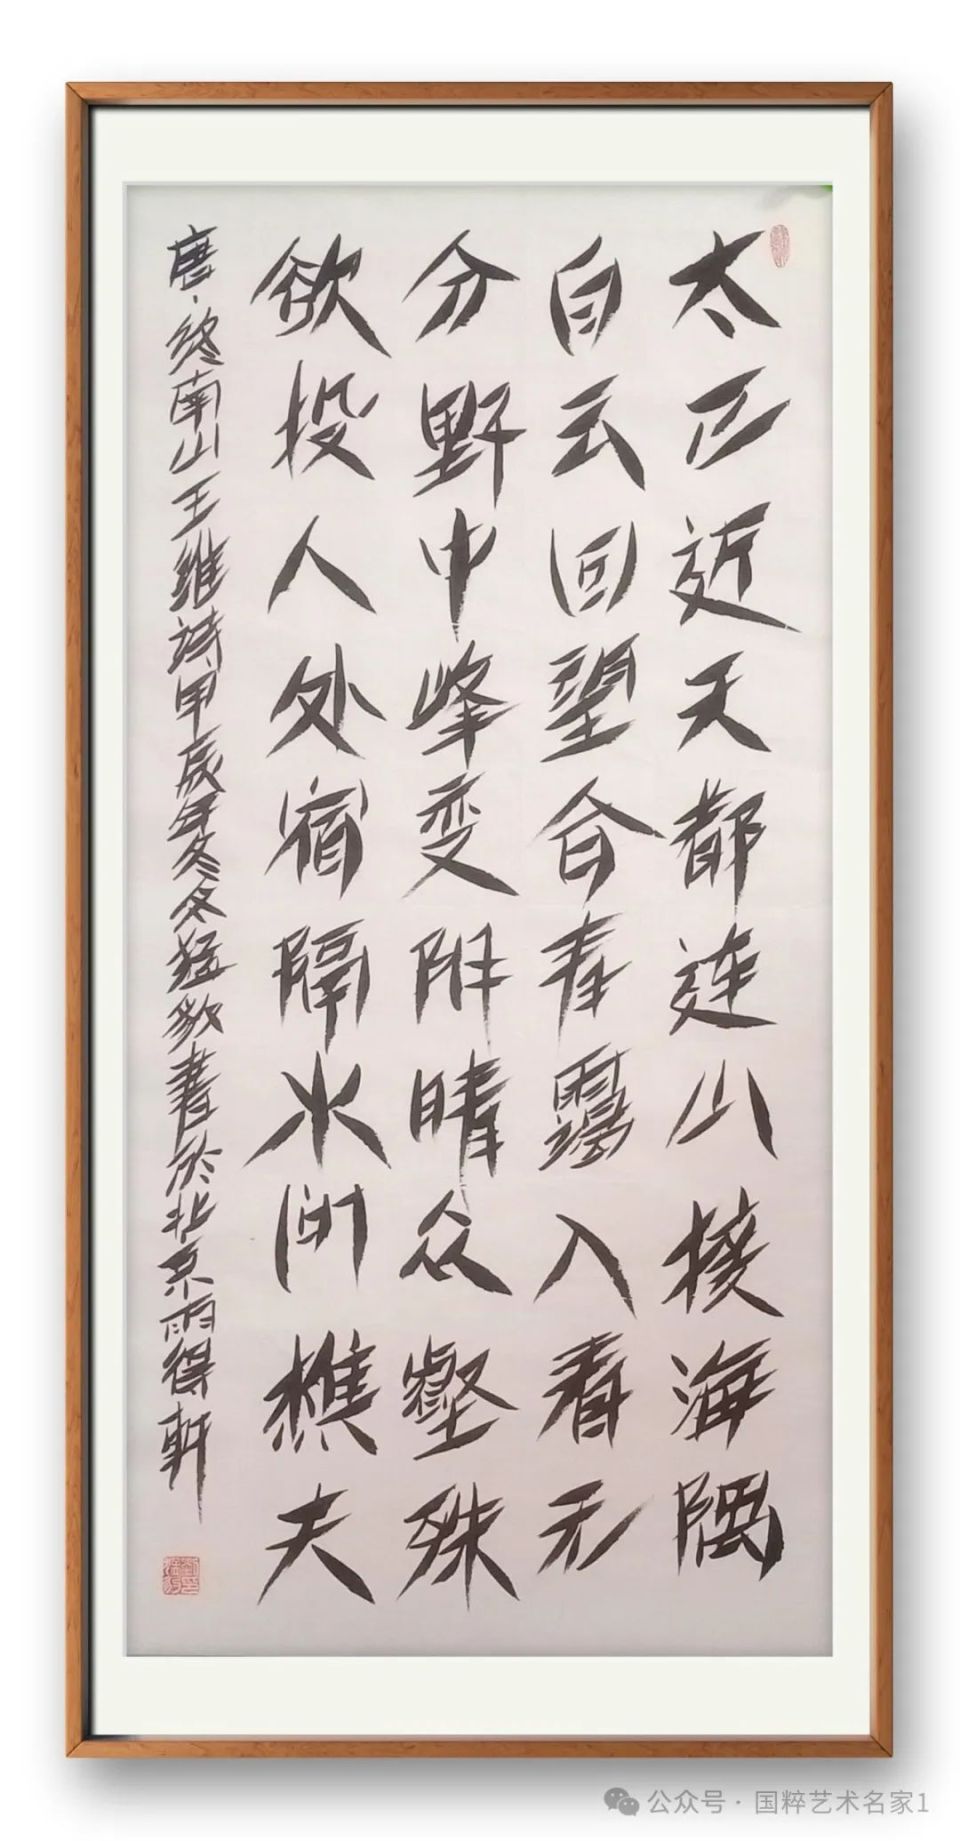 太乙近天都连山接海隅
白云回望合青霭入看无
分野中峰变阴晴众壑殊
欲投人处宿隔水问樵夫
唐·终南山王维诗甲辰年冬猛豹書於北京雨得軒
公众号·国粹艺术名家1